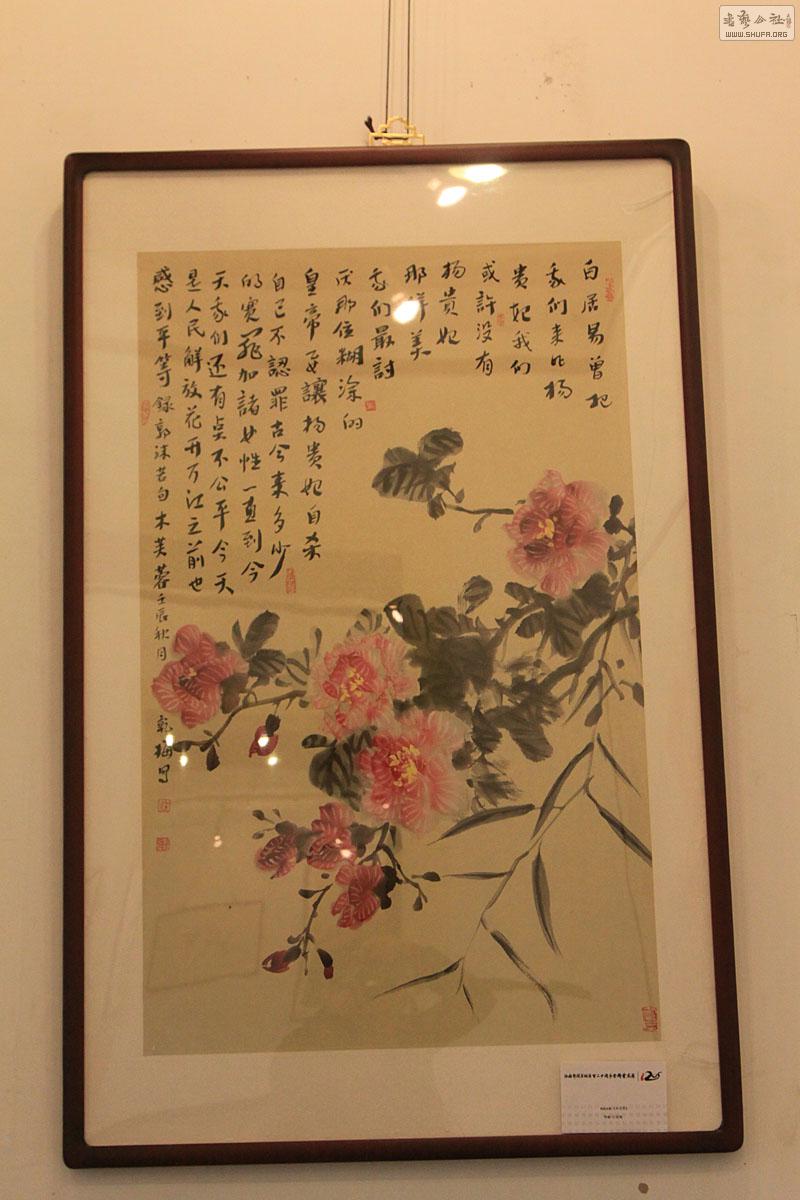 白居易曾把
我们来比杨
贵妃我们
或許没有
杨貴妃
那样美
我们最討
厌那位糊涂的
皇帝要讓杨贵妃自杀
自己不認罪古今来多少
的冤罪加諸女性一直到今
天我们还有点不公平今天
是人民解放花开万江之前也
感到平等 錄郭沫若句木芙蓉壬辰秋月
乾 写
书艺公社
WWW.SHUFA.ORG
120